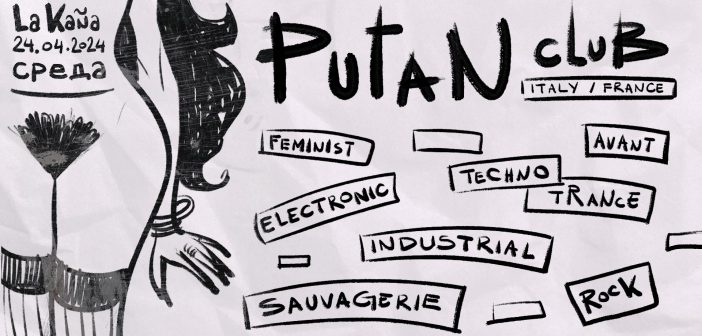 La Kaña
24.04.2024
среда
PUTAN CLUB
ITALY / FRANCE
FEMINIST
AVANT
TECHNO
ELECTRONIC
TRANCE
INDUSTRIAL
SAUVAGERIE
ROCK